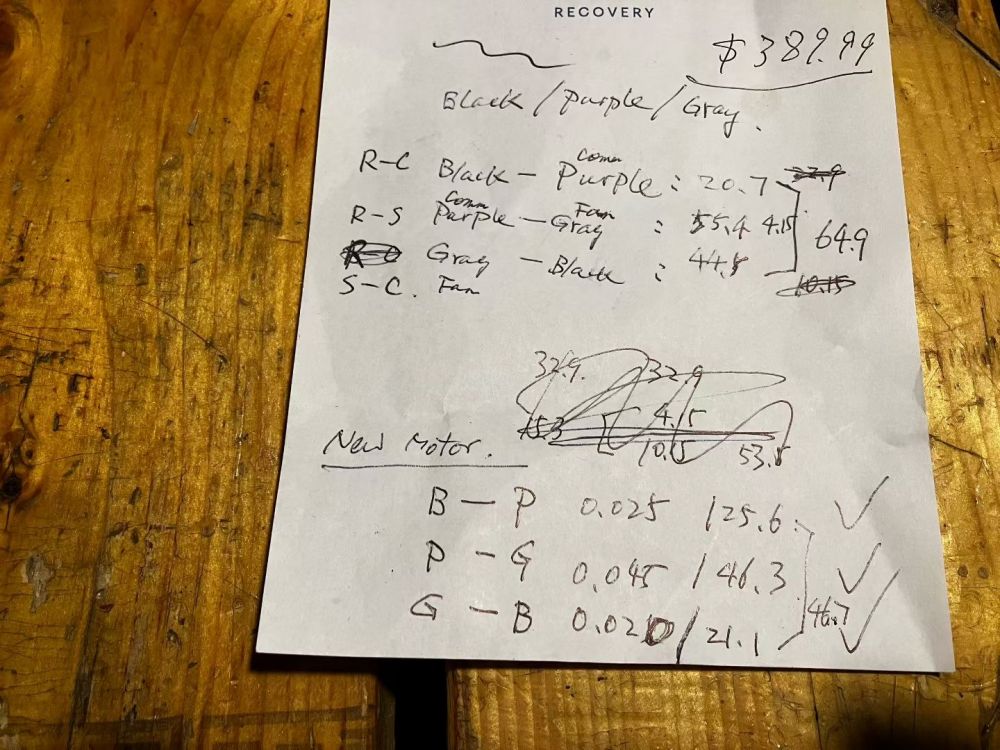 RECOVERY
$389.99
Black / Purple / Gray.
R-C Black - Comm Purple : 20.7
R-S Comm Purple - Fan Gray : 55.4 4.15 64.9
Gray - Black : 44.5
S-C. Fan
32.9. 32.9
15.3 4.15
10.15 53.5
New Motor.
B - P 0.025 / 25.6 ✓
P - G 0.045 / 46.3 ✓
G - B 0.020 / 21.1 46.7 ✓